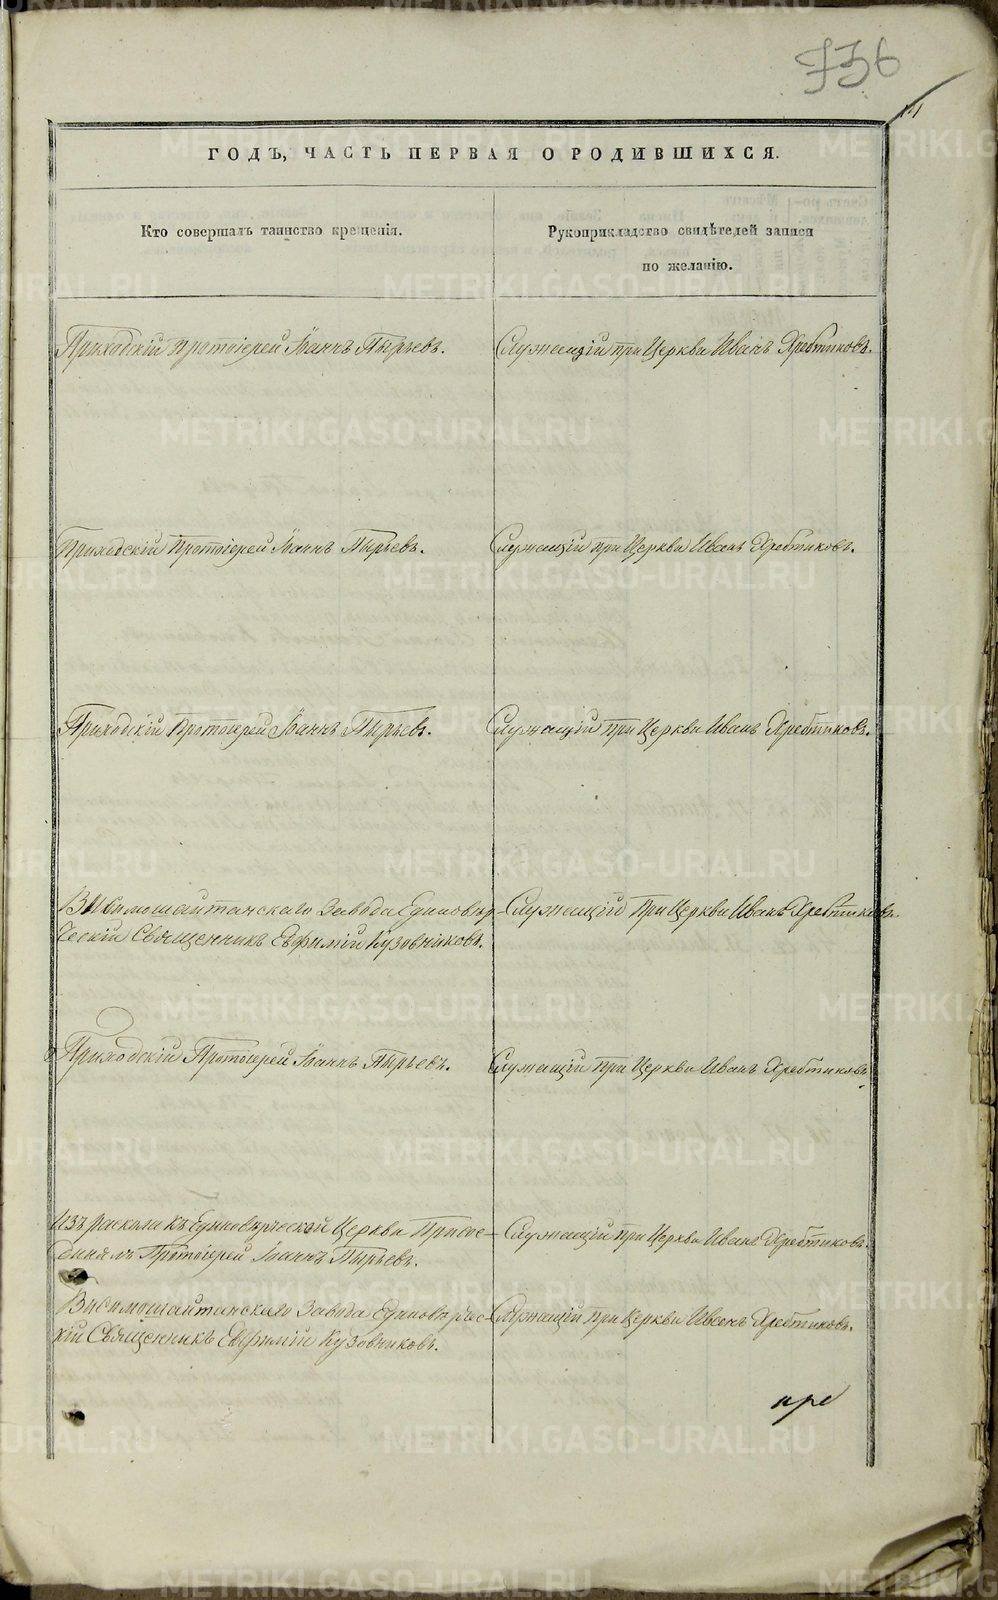 736
14
ГОДЪ, ЧАСТЬ ПЕРВАЯ О РОДИВШИХСЯ.
Кто совершалъ таинство крещенія.
Рукоприкладство свидѣтелей записи
по желанію.
Приходскій Протоіерей Іоаннъ Пырьевъ.
Служащій при Церкви Иванъ Хребтиковъ.
Приходскій Протоіерей Іоаннъ Пырьевъ.
Служащій при Церкви Иванъ Хребтиковъ.
Приходскій Протоіерей Іоаннъ Пырьевъ.
Служащій при Церкви Иванъ Хребтиковъ.
Висимошайтанскаго Завода Единовѣр-
ческій Священникъ Евфимій Кузовниковъ.
Служащій при Церкви Иванъ Хребтиковъ.
Приходскій Протоіерей Іоаннъ Пырьевъ.
Служащій при Церкви Иванъ Хребтиковъ.
Изъ раскола къ Единовѣрческой Церкви Присое-
динялъ Протоіерей Іоаннъ Пырьевъ.
Служащій при Церкви Иванъ Хребтиковъ.
Висимошайтанскаго Завода Единовѣрчес-
кій Священникъ Евфимій Кузовниковъ.
Служащій при Церкви Иванъ Хребтиковъ.
METRIKI.GASO-URAL.RU